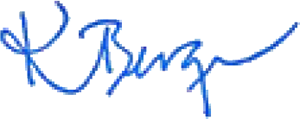 K Berger